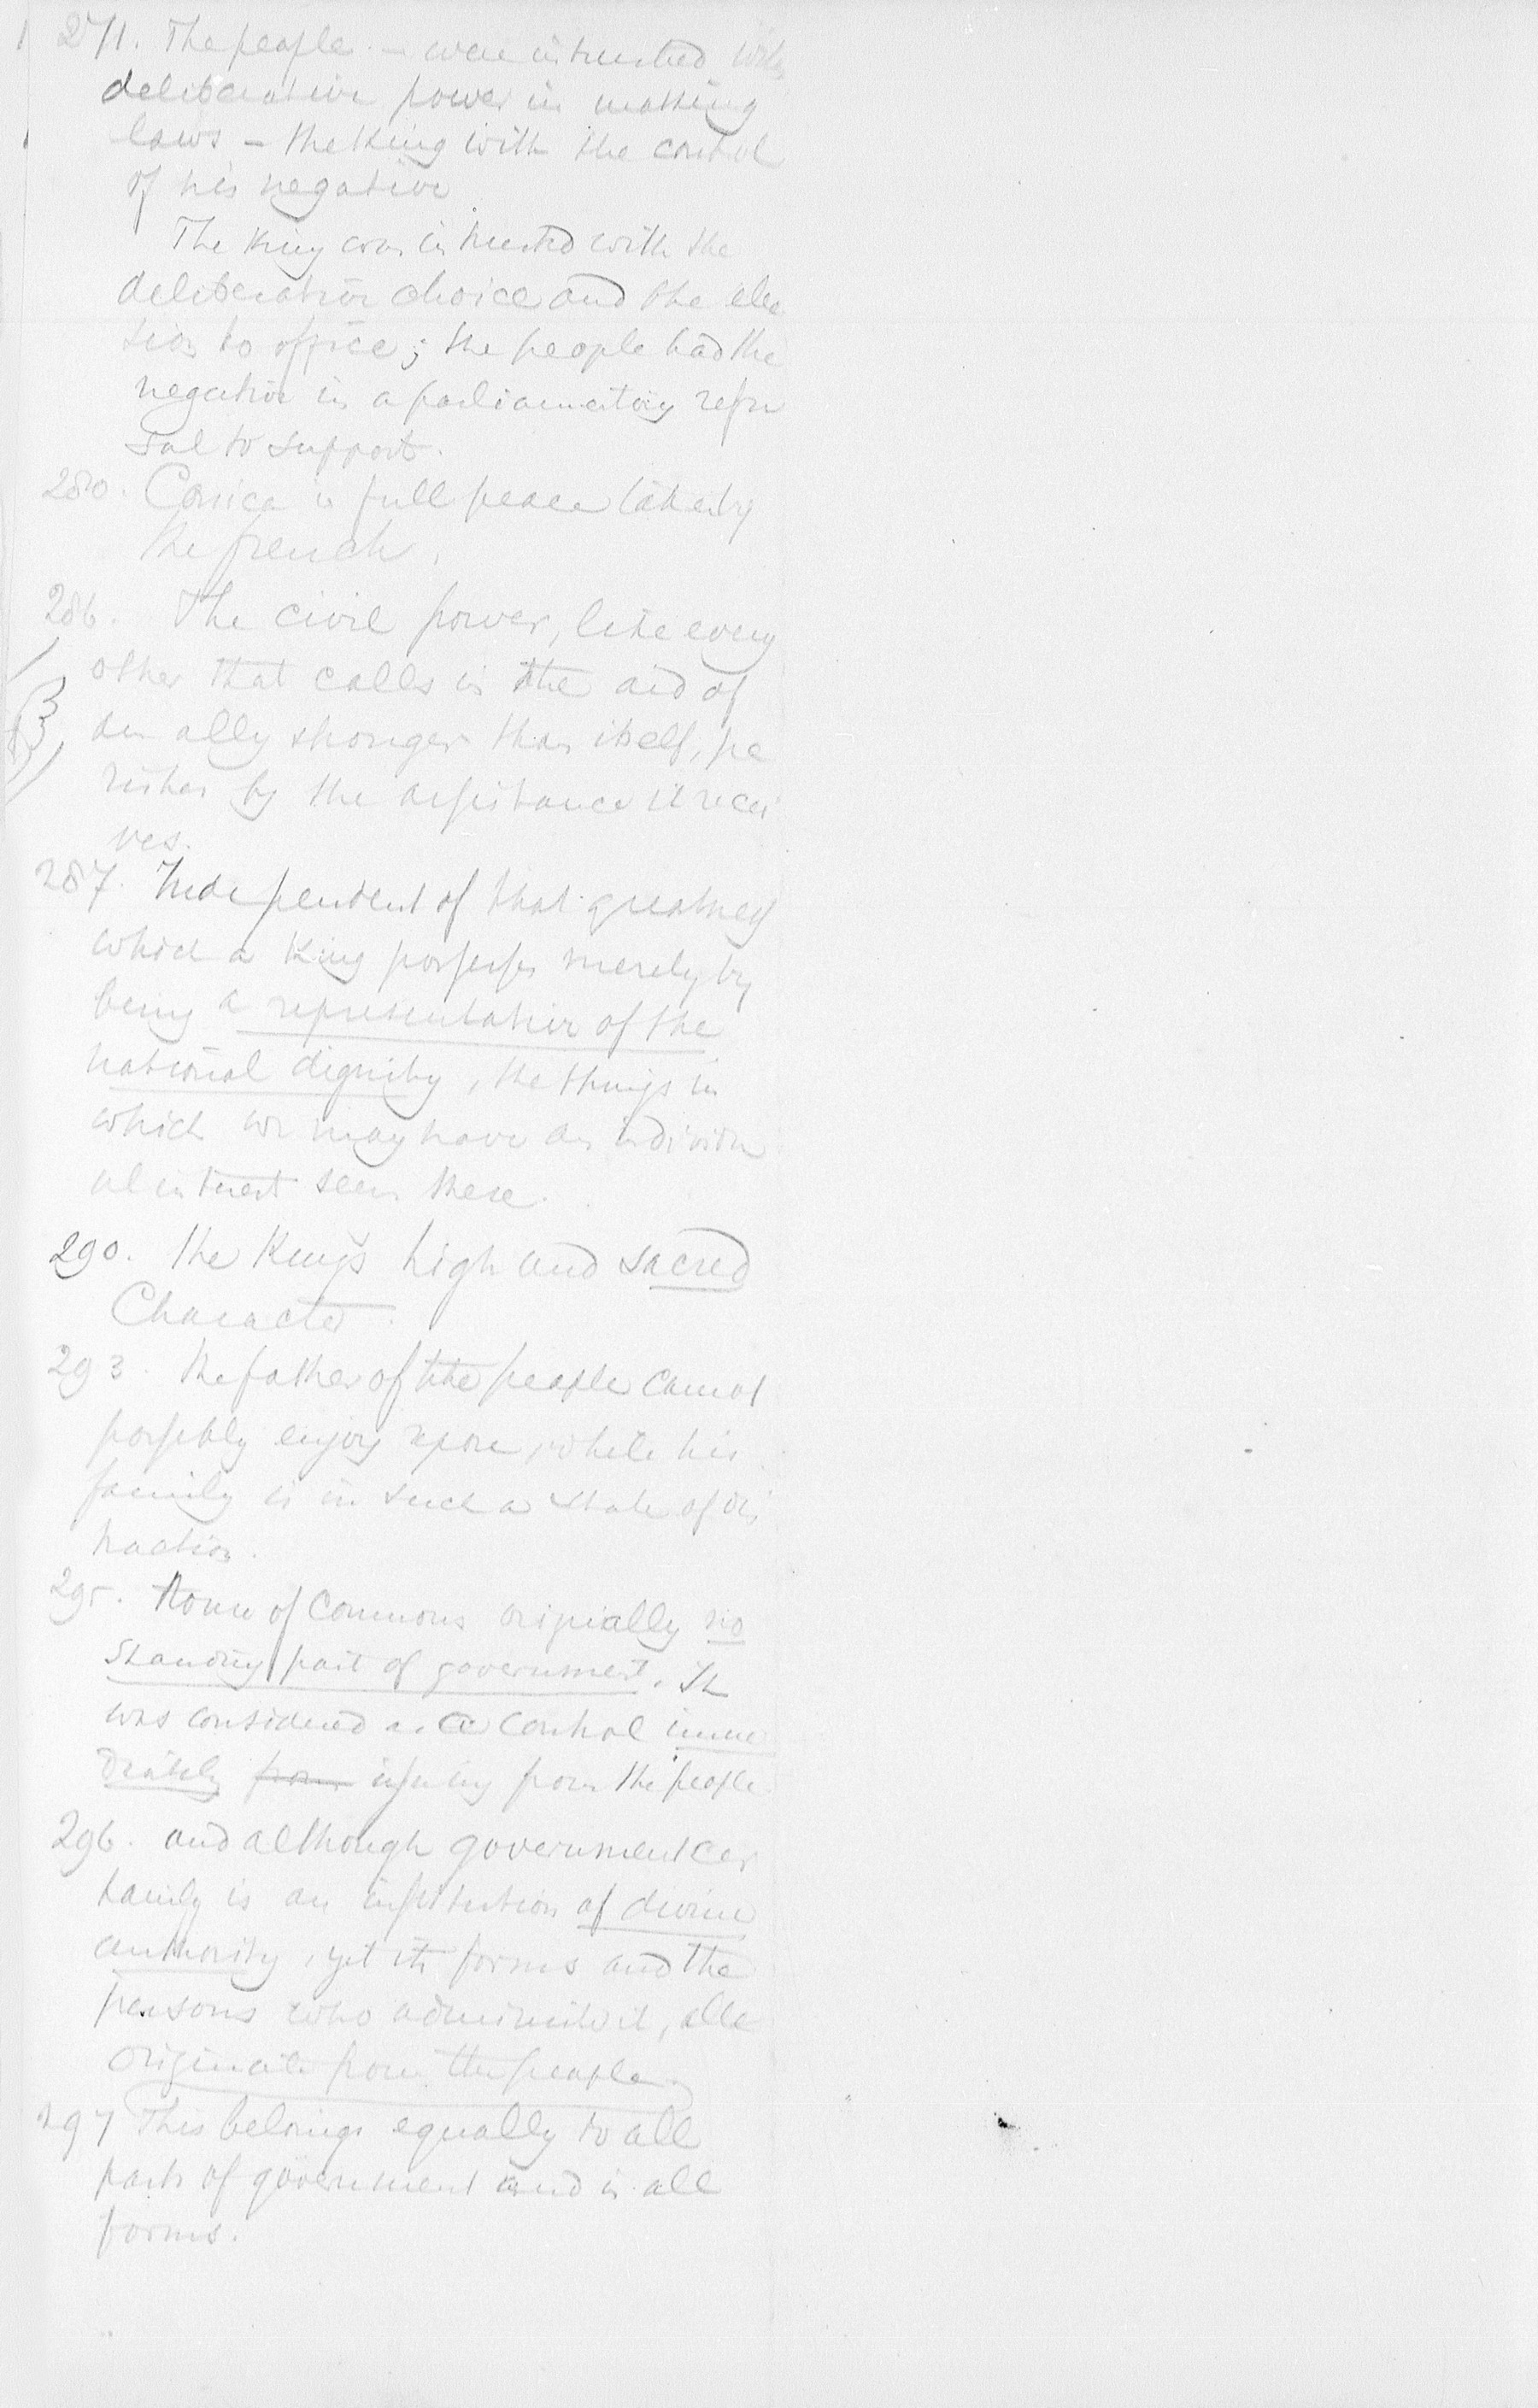 271. The people – were intrusted with
deliberative power in making
laws – the King with the control
of his negative
The King was intrusted with the
deliberative choice and the elec
tion to office; the people had the
negative in a parliamentary refu
sal to support.
280. Corsica in full peace taken by
the french.
286. The civil power, like every
other that calls in the aid of
an ally stronger than itself, pe
rishes by the assistance it recei
ves.
287. Independent of that greatness
which a King possesses merely by
being a representative of the
national dignity, the things in
which we may have an individu
al interest seem these.
290. the King's high and sacred
Character.
293. the father of the people cannot
possibly enjoy repose, while his
family is in such a state of dis
traction.
295. House of Commons originally no
standing part of government. It
was considered as a control imme
diately from issuing from the people.
296. and although government cer
tainly is an institution of divine
authority, yet its forms and the
persons who administer it, all
originate from the people.
297 This belongs equally to all
parts of government and in all
forms.